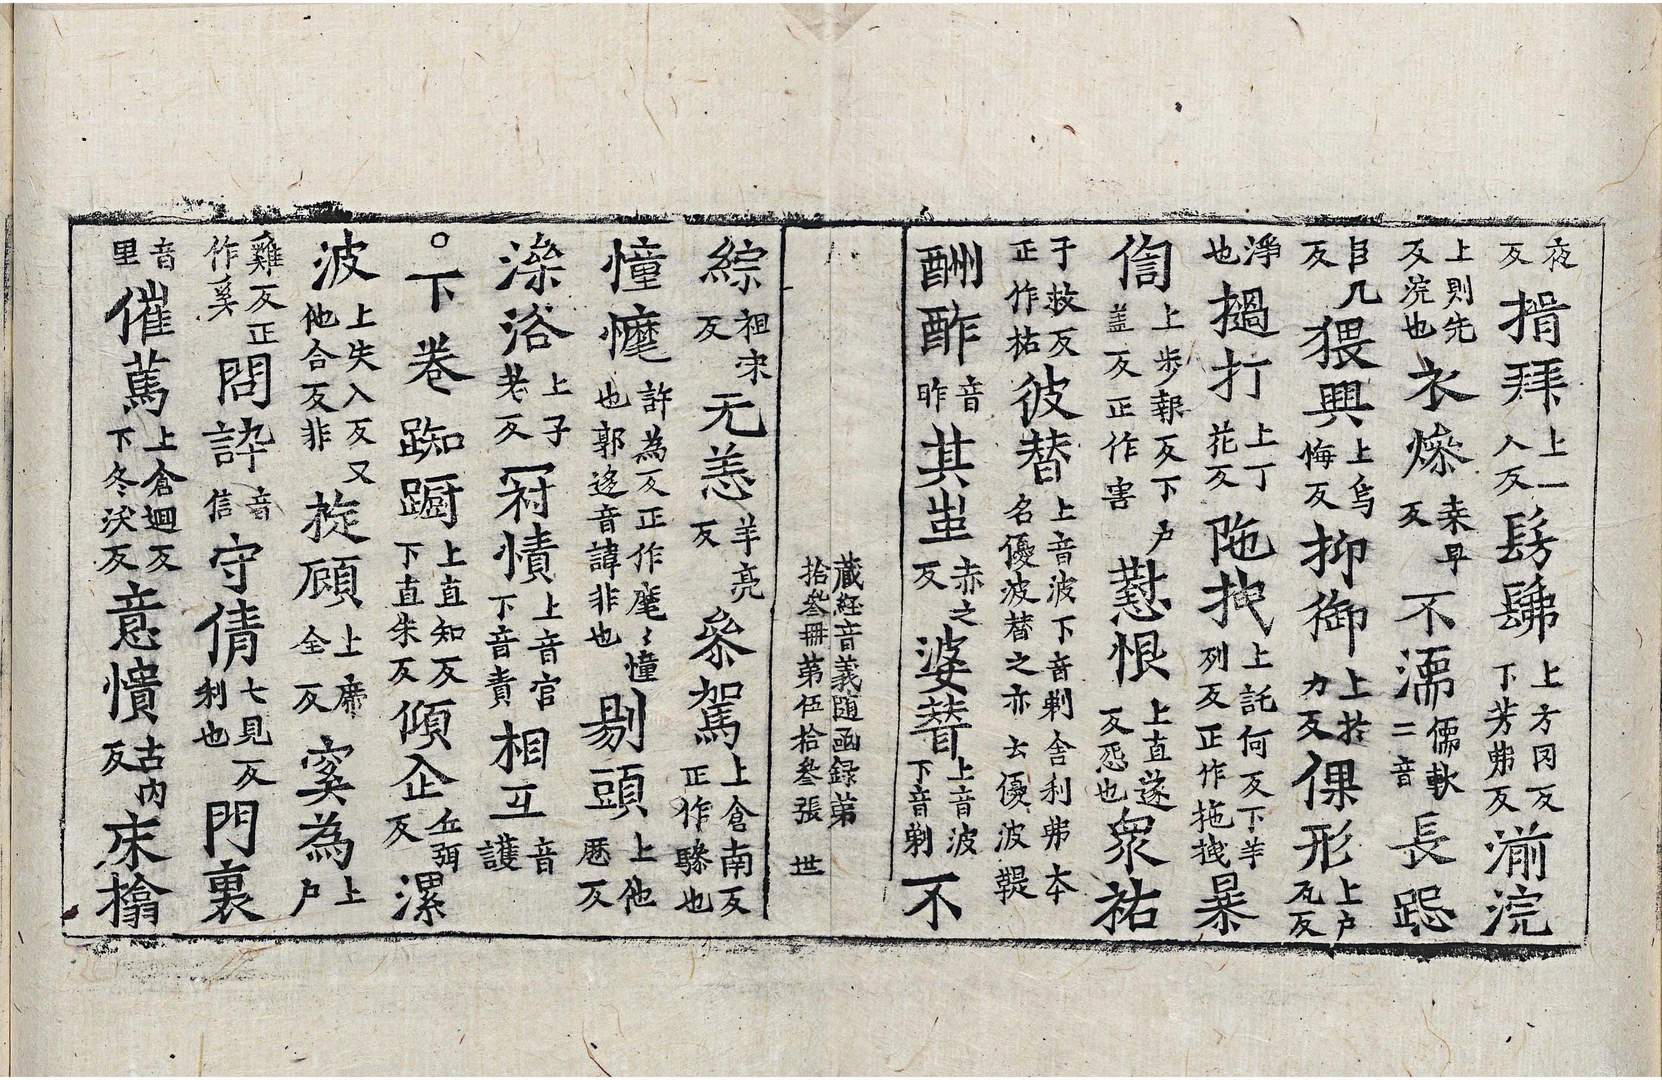 夜反揖拜上一入反髣髴上方罔反下芳弗反湔浣
上則先反浣也衣燥桒早反不濡儒軟二音長跽
巨几反猥興上烏悔反抑御上扵力反倮形上戶瓦反
淨也撾打上丁花反陁拽上託何反下羊列反正作拖拽暴
傄上步報反下戶盖反正作害懟恨上直遂反怨也衆祐
于救反正作祐彼替上音波下音剃舍利弗本名優波替之亦云優波鞮
酬酢音昨其蚩赤之反婆替上音波下音剃不
藏經音義隨函録第拾叁冊第伍拾叁張 世
綜祖宋反无恙羊亮反叅駕上倉南反正作驂也
憧㦄許為反正作麾麾憧也郭迻音諱非也剔頭上他厯反
澡浴上子老反冠幘上音官下音責相互音護
○下卷踟蹰上直知反下直朱反傾企丘弭反漯
波上失入反又他合反非旋顧上席全反奚為上戶
雞反正作奚問訊音信守倩七見反利也門裏
音里催蔿上倉迴反下冬沃反意憒古內反床檐